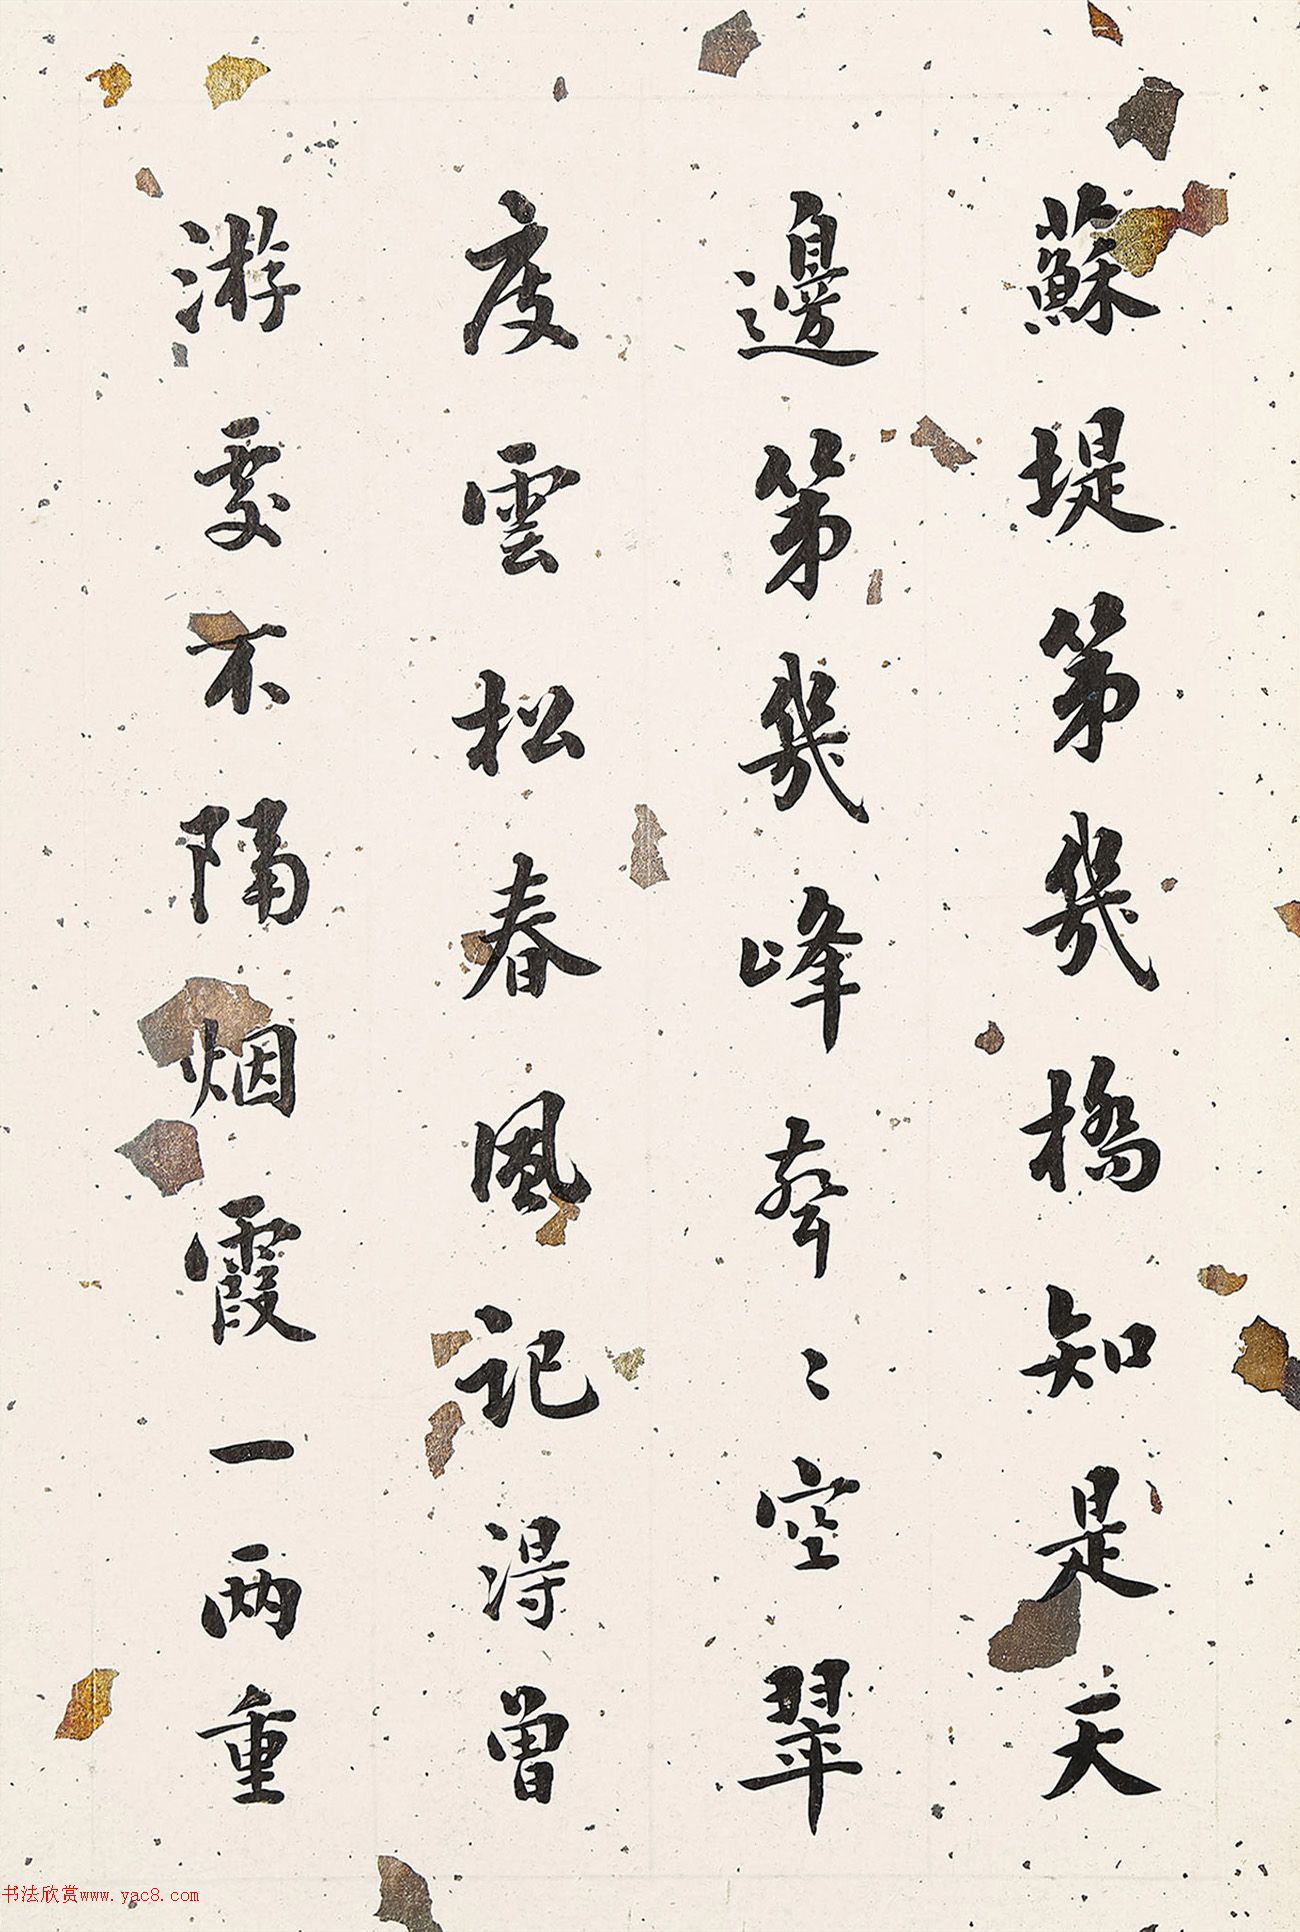 蘇堤第幾橋知是天
邊第幾峰聲〻空翠
度雲松春風記得曾
游處不隔烟霞一两重
书法欣赏www.yac8.com